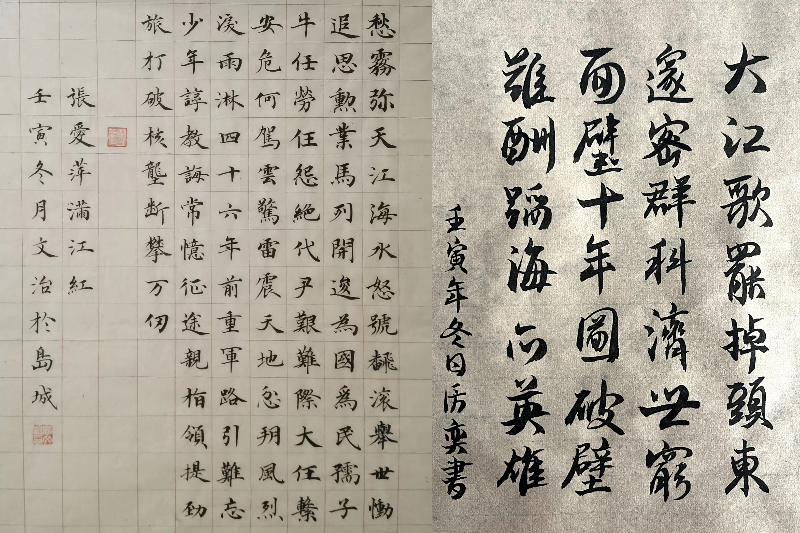 愁霧弥天江海水怒號飜滚舉世慟
追思勳業馬列開逡為國爲民孺子
牛任勞任怨絶代尹艱難際大任繫
安危何駕雲驚雷震天地忽朔風烈
淚雨淋四十六年前重軍路引難忘
少年諄教誨常憶征途親指領提劲
旅打破核壟断攀万仞
張愛萍滿江紅
壬寅冬月文治於島城
大江歌罷掉頭東
邃密群科濟世窮
面壁十年圖破壁
難酬蹈海亦英雄
壬寅年冬日奕書